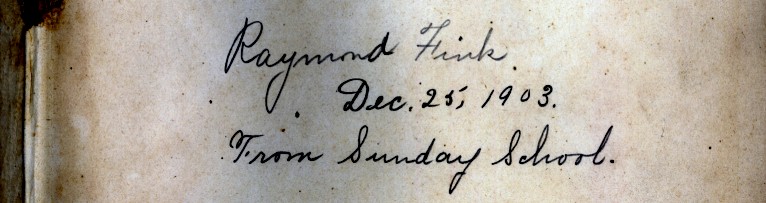 Raymond Fink.
Dec. 25, 1903.
From Sunday School.